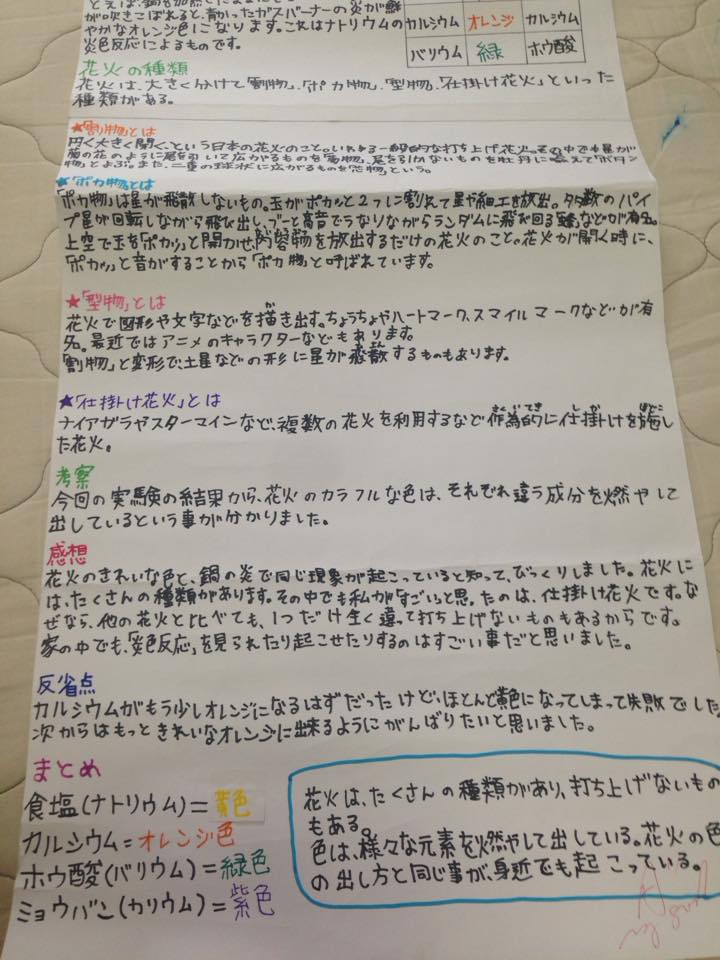 が吹きこぼれると、青かったガスバーナーの炎が鮮
やかなオレンジ色になります。これはナトリウムの
炎色反応によるものです。
カルシウム オレンジ カルシウム
バリウム 緑 ホウ酸
花火の種類
花火は、大きく分けて「割物」、「ポカ物」、「型物」、「仕掛け花火」といった
種類がある。
★「割物」とは
円く大きく開く、という日本の花火のこと。いわゆる一般的な打ち上げ花火。その中でも星が
菊の花のように尾を引いて広がるものを「菊物」、尾を引かないものを牡丹に
物」とよぶ。また、二重の球状に広がるものを「芯物」という。
★「ポカ物」とは
「ポカ物」は星が飛散しないもの。玉がポカッと2つに割れて星や細工を放出。多数のパイ
プ星が回転しながら飛び出し、ブーと高音でうなりながらランダムに飛び回る「蜂」などが有名。
上空で玉を「ポカッ」と開かせ、内容物を放出するだけの花火のこと。花火が開く時に、
「ポカッ」と音がすることから「ポカ物」と呼ばれています。
★「型物」とは
花火で図形や文字などを描き出す。ちょうちょやハートマーク、スマイルマークなどが有
名。最近ではアニメのキャラクターなどもあります。
「割物」と変形で、土星などの形に星が飛散するものもあります。
★「仕掛け花火」とは
ナイアガラやスターマインなど、複数の花火を利用するなど作為的に仕掛けを施し
た花火。
考察
今回の実験の結果から、花火のカラフルな色は、それぞれ違う成分を燃やして
出しているという事が分かりました。
感想
花火のきれいな色と、鍋の炎で同じ現象が起こっていると知って、びっくりしました。花火に
は、たくさんの種類があります。その中でも私が「すごい」と思ったのは、仕掛け花火です。な
ぜなら、他の花火と比べても、1つだけ全く違って打ち上げないものもあるからです。
家の中でも、「炎色反応」を見られたり起こせたりするのはすごい事だと思いました。
反省点
カルシウムがもう少しオレンジになるはずだったけど、ほとんど黄色になってしまって失敗でした。
次からはもっときれいなオレンジに出来るようにがんばりたいと思いました。
まとめ
食塩(ナトリウム)=黄色
カルシウム=オレンジ色
ホウ酸(バリウム)=緑色
ミョウバン(カリウム)=紫色
花火は、たくさんの種類があり、打ち上げないもの
もある。
色は、様々な元素を燃やして出している。花火の色
の出し方と同じ事が、身近でも起こっている。